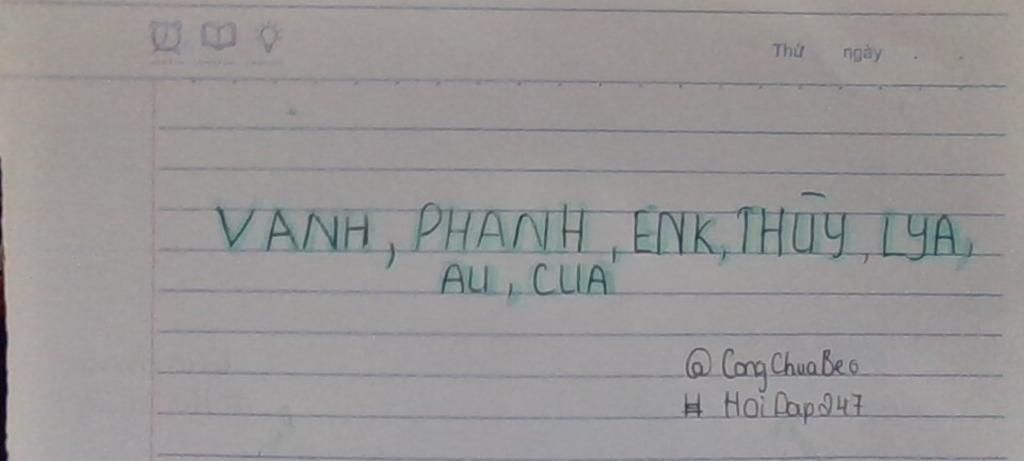 Thứ ngày
VANH, PHANH, ENK, THŪY, LYA,
AU, CUA
@CongChuaBeo
# HoiDap247